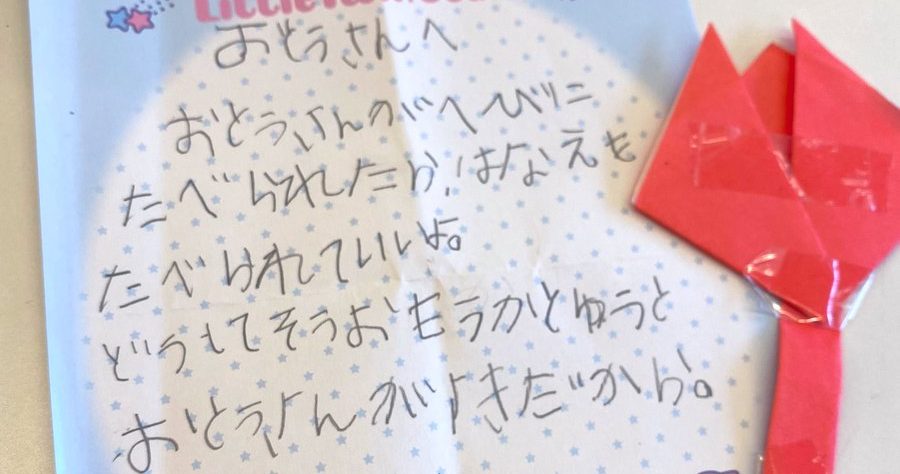 おとうさんへ
おとうさんのがへびに
たべられたら、はなえも
たべられていいよ。
どうしてそうおもうかとゆうと
おとうさんがすきだから。